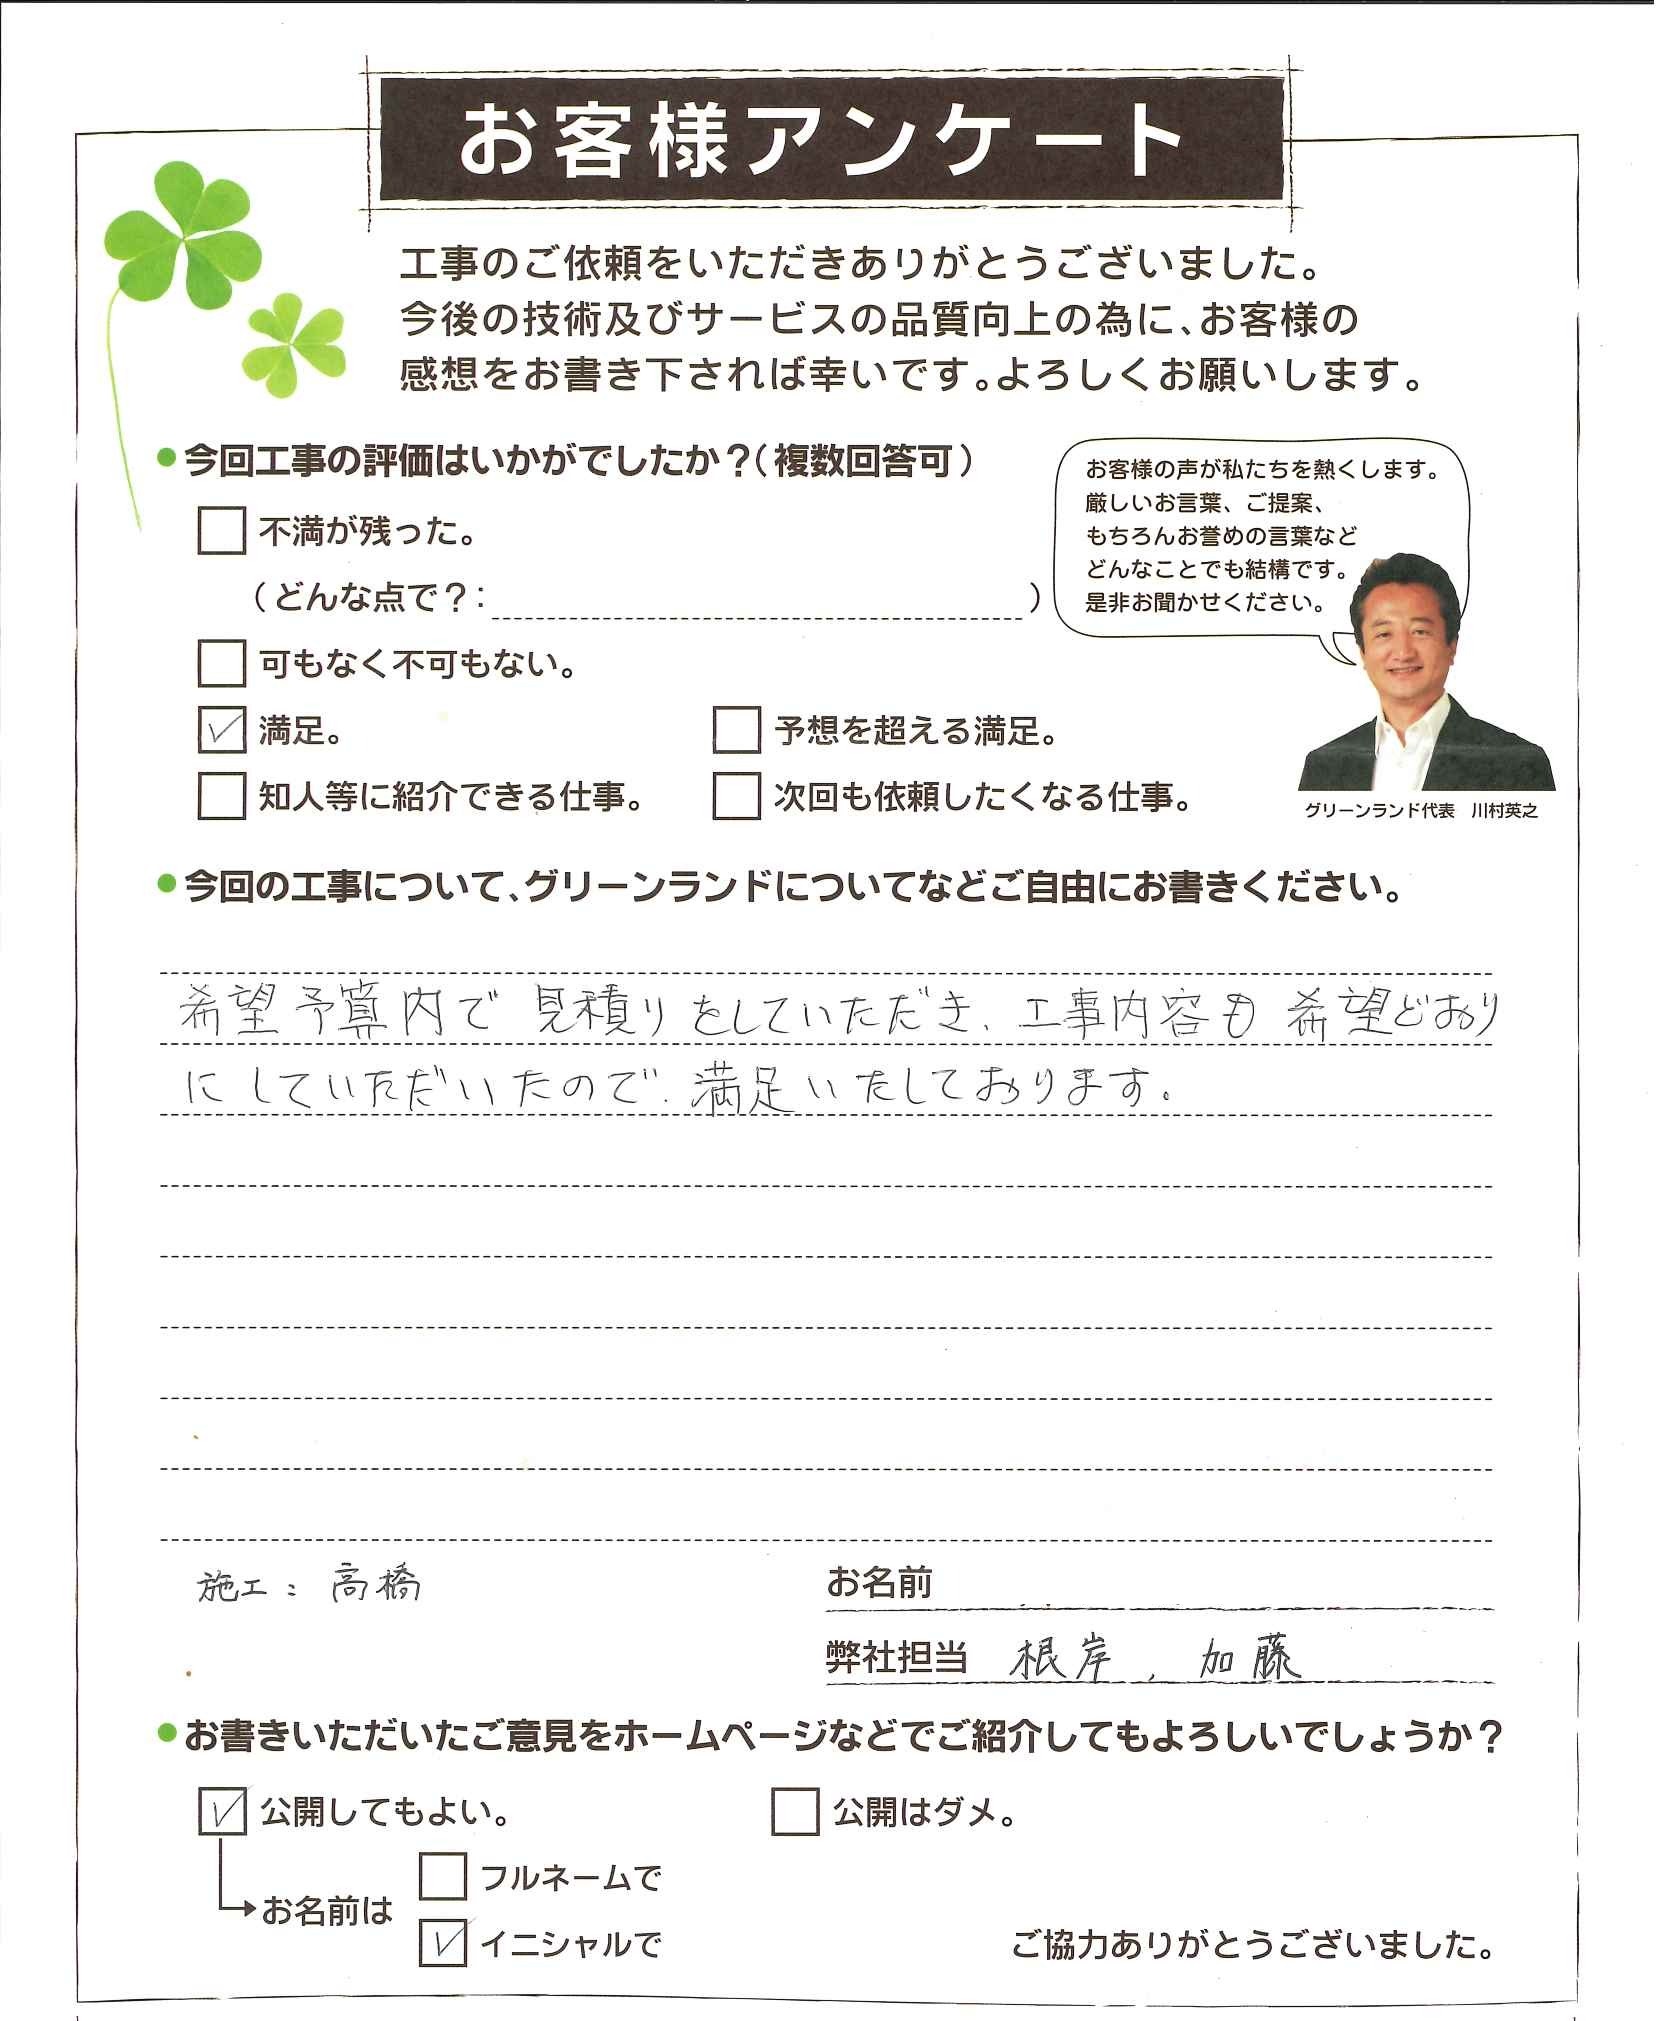 お客様アンケート
工事のご依頼をいただきありがとうございました。
今後の技術及びサービスの品質向上の為に、お客様の
感想をお書き下されば幸いです。よろしくお願いします。
●今回工事の評価はいかがでしたか？（複数回答可）
不満が残った。
（どんな点で？：　　　　）
可もなく不可もない。
✓ 満足。　予想を超える満足。
知人等に紹介できる仕事。　次回も依頼したくなる仕事。
お客様の声が私たちを熱くします。
厳しいお言葉、ご提案、
もちろんお誉めの言葉など
どんなことでも結構です。
是非お聞かせください。
グリーンランド代表　川村英之
●今回の工事について、グリーンランドについてなどご自由にお書きください。
希望予算内で見積りをしていただき、工事内容も希望どおり
にしていただいたので、満足いたしております。
施工：高橋
お名前
弊社担当　根岸、加藤
●お書きいただいたご意見をホームページなどでご紹介してもよろしいでしょうか？
✓ 公開してもよい。　公開はダメ。
お名前は
フルネームで
✓ イニシャルで
ご協力ありがとうございました。